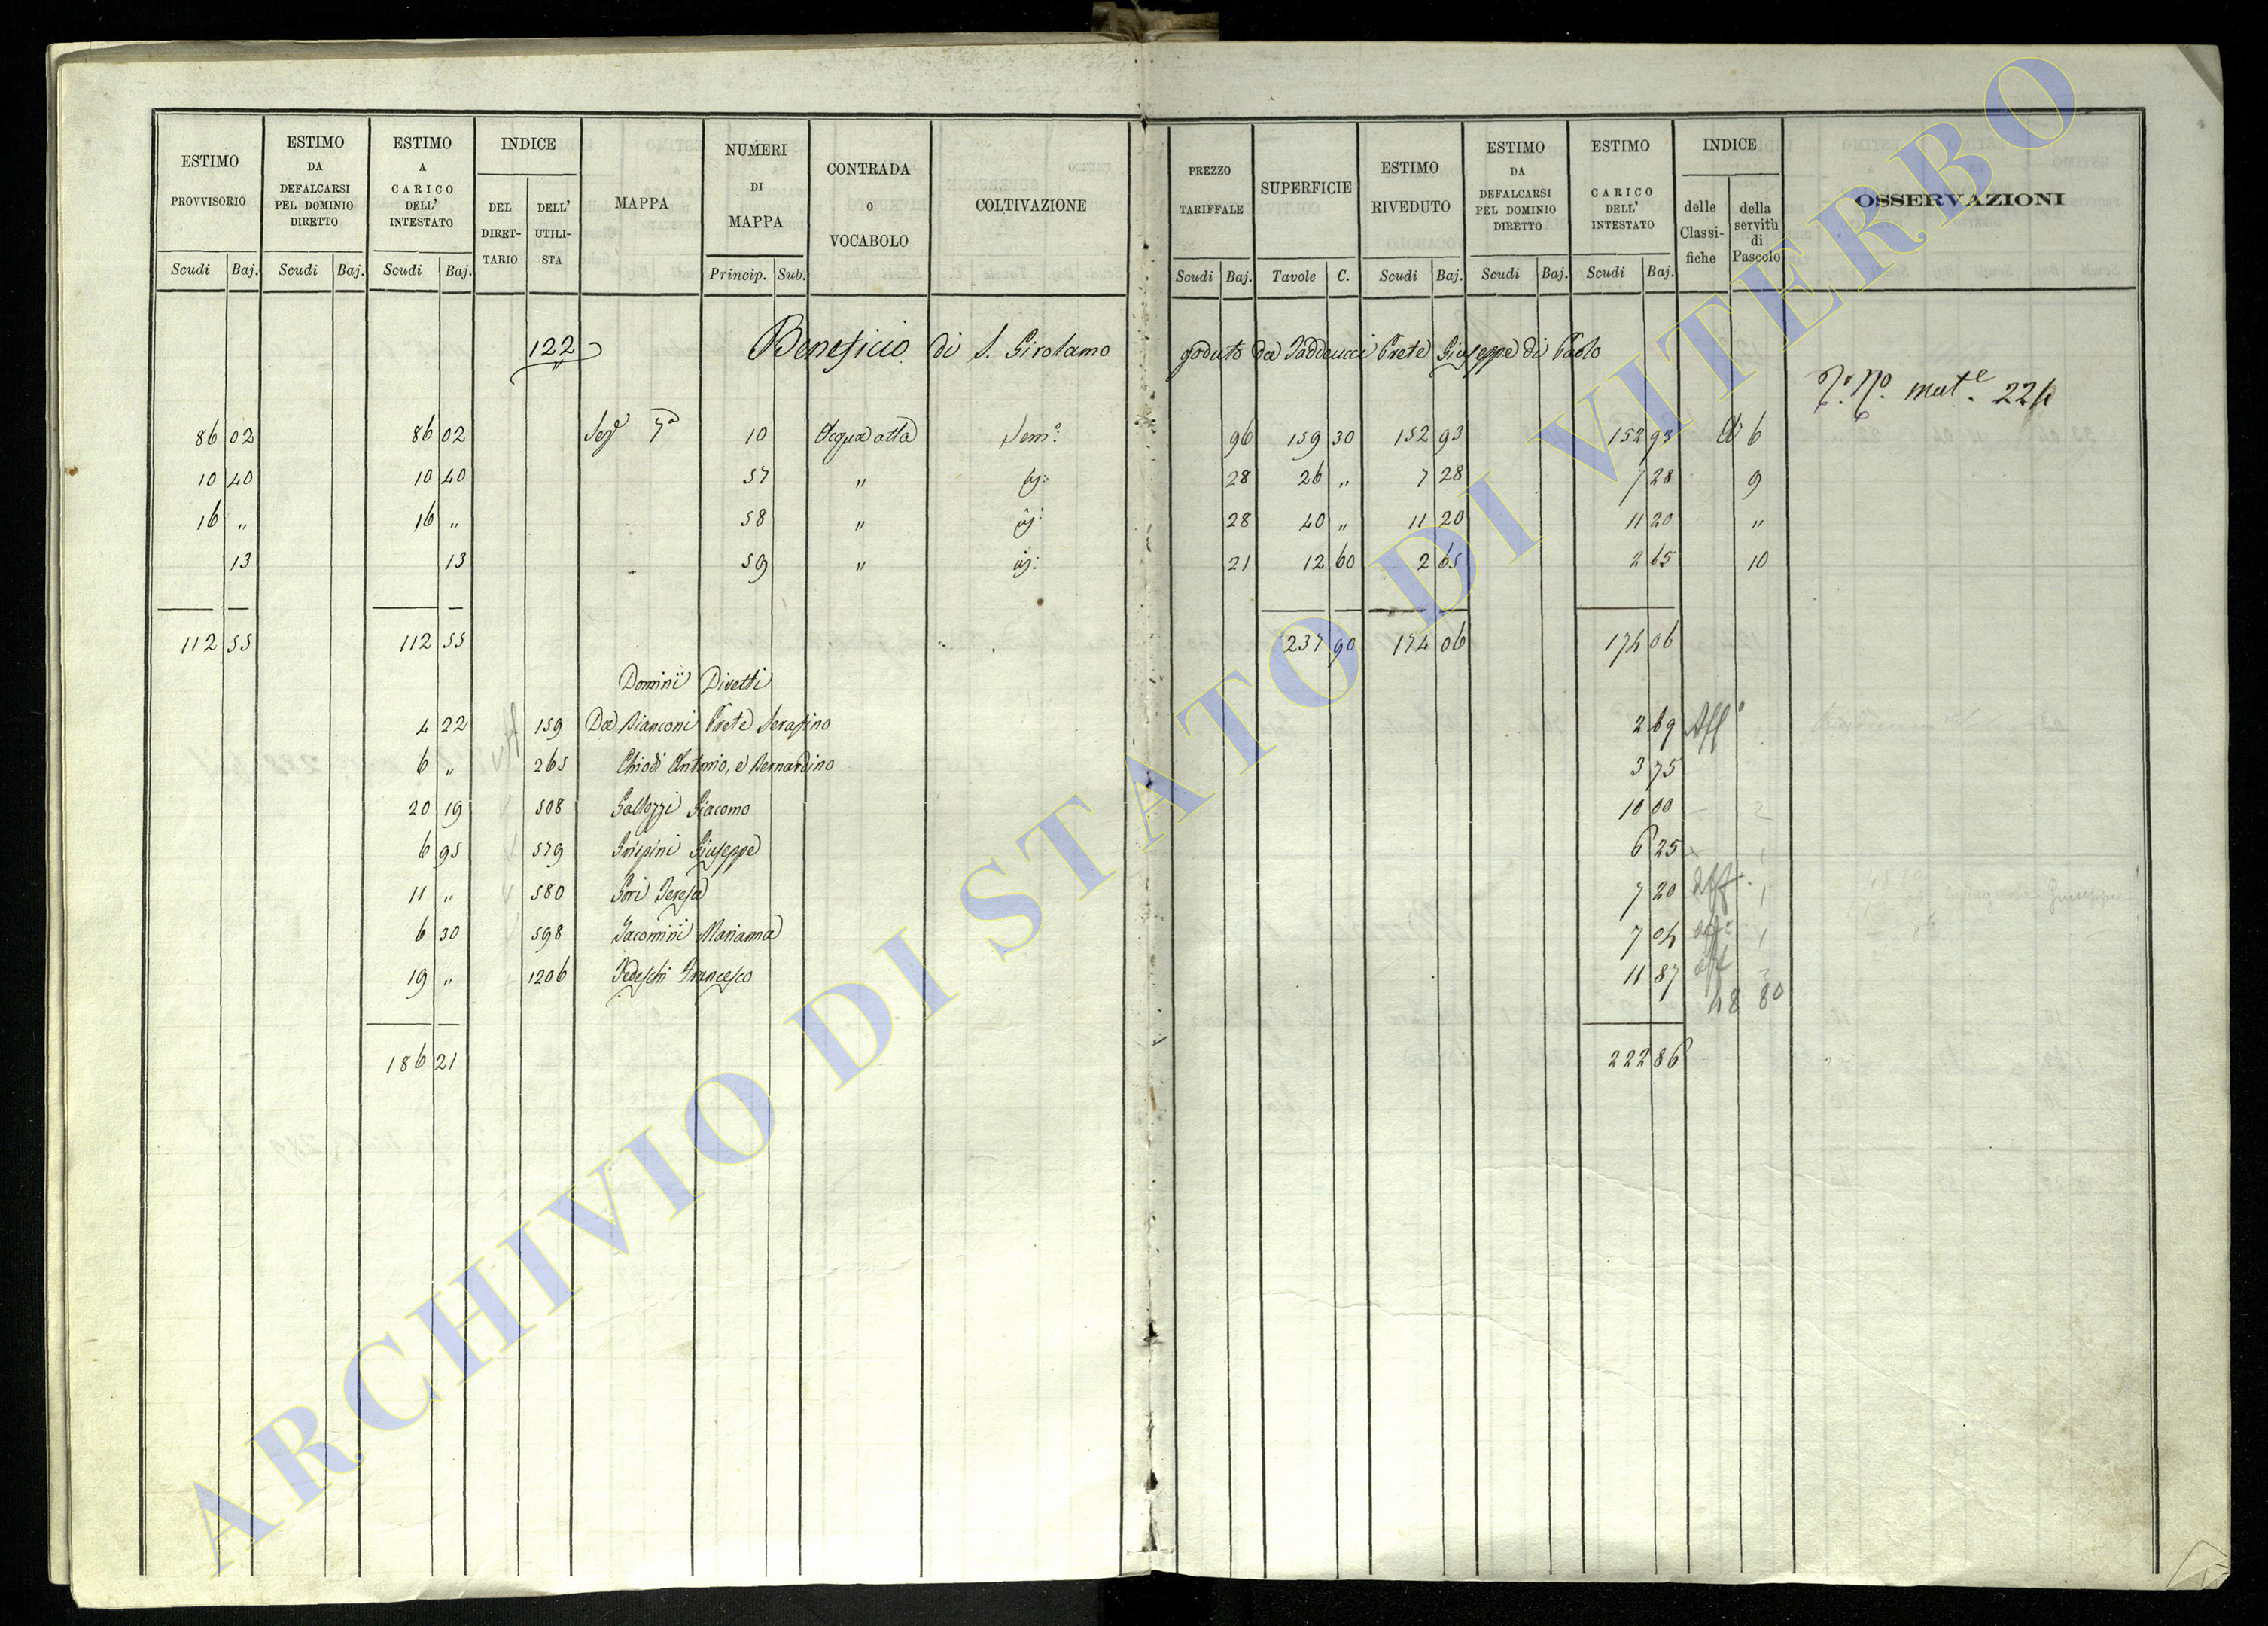 ESTIMO PROVVISORIO | ESTIMO DA DEFALCARSI PEL DOMINIO DIRETTO | ESTIMO A CARICO DELL' INTESTATO | INDICE DEL DIRET-TARIO | DELL' UTILI-STA | MAPPA | NUMERI DI MAPPA | CONTRADA O VOCABOLO | COLTIVAZIONE | PREZZO TARIFFALE | SUPERFICIE | ESTIMO RIVEDUTO | ESTIMO DA DEFALCARSI PEL DOMINIO DIRETTO | ESTIMO CARICO DELL' INTESTATO | INDICE delle Classi-fiche | della servitù di Pascolo | OSSERVAZIONI
Scudi | Baj. | Scudi | Baj. | Scudi | Baj. | Princip. | Sub. | Scudi | Baj. | Tavole | C. | Scudi | Baj. | Scudi | Baj. | Scudi | Baj.
122 Beneficio di S. Girolamo goduto da Taddeucci Prete Giuseppe di Paolo
mut.e 224
86 02 | 86 02 | Sez.e | 10 | Acqua alta | Sem.o | 96 | 159 30 | 152 93 | 152 93 | 6
10 40 | 10 40 | 57 | " | 28 | 26 " | 7 28 | 7 28 | 9
16 " | 16 " | 58 | " | 28 | 40 " | 11 20 | 11 20 | "
13 | 13 | 59 | " | 21 | 12 60 | 2 65 | 2 65 | 10
112 55 | 112 55 | 237 90 | 174 06 | 174 06
Dominii Diretti
4 22 | 159 | Da Bianconi Prete Serafino | 2 69 | Aff.o
6 " | 265 | Chiodi Antonio, e Bernardino | 3 75
20 19 | 508 | Gallozzi Giacomo | 10 00 | 2
6 95 | 579 | Grispini Giuseppe | 6 25 | 1
11 " | 580 | Gori Teresa | 7 20 | aff. | 1
6 30 | 598 | Jacomini Marianna | 7 04 | aff.o | 1
19 " | 1206 | Tedeschi Francesco | 11 87 | aff | 2
48 80
186 21 | 222 86
ARCHIVIO DI STATO DI VITERBO